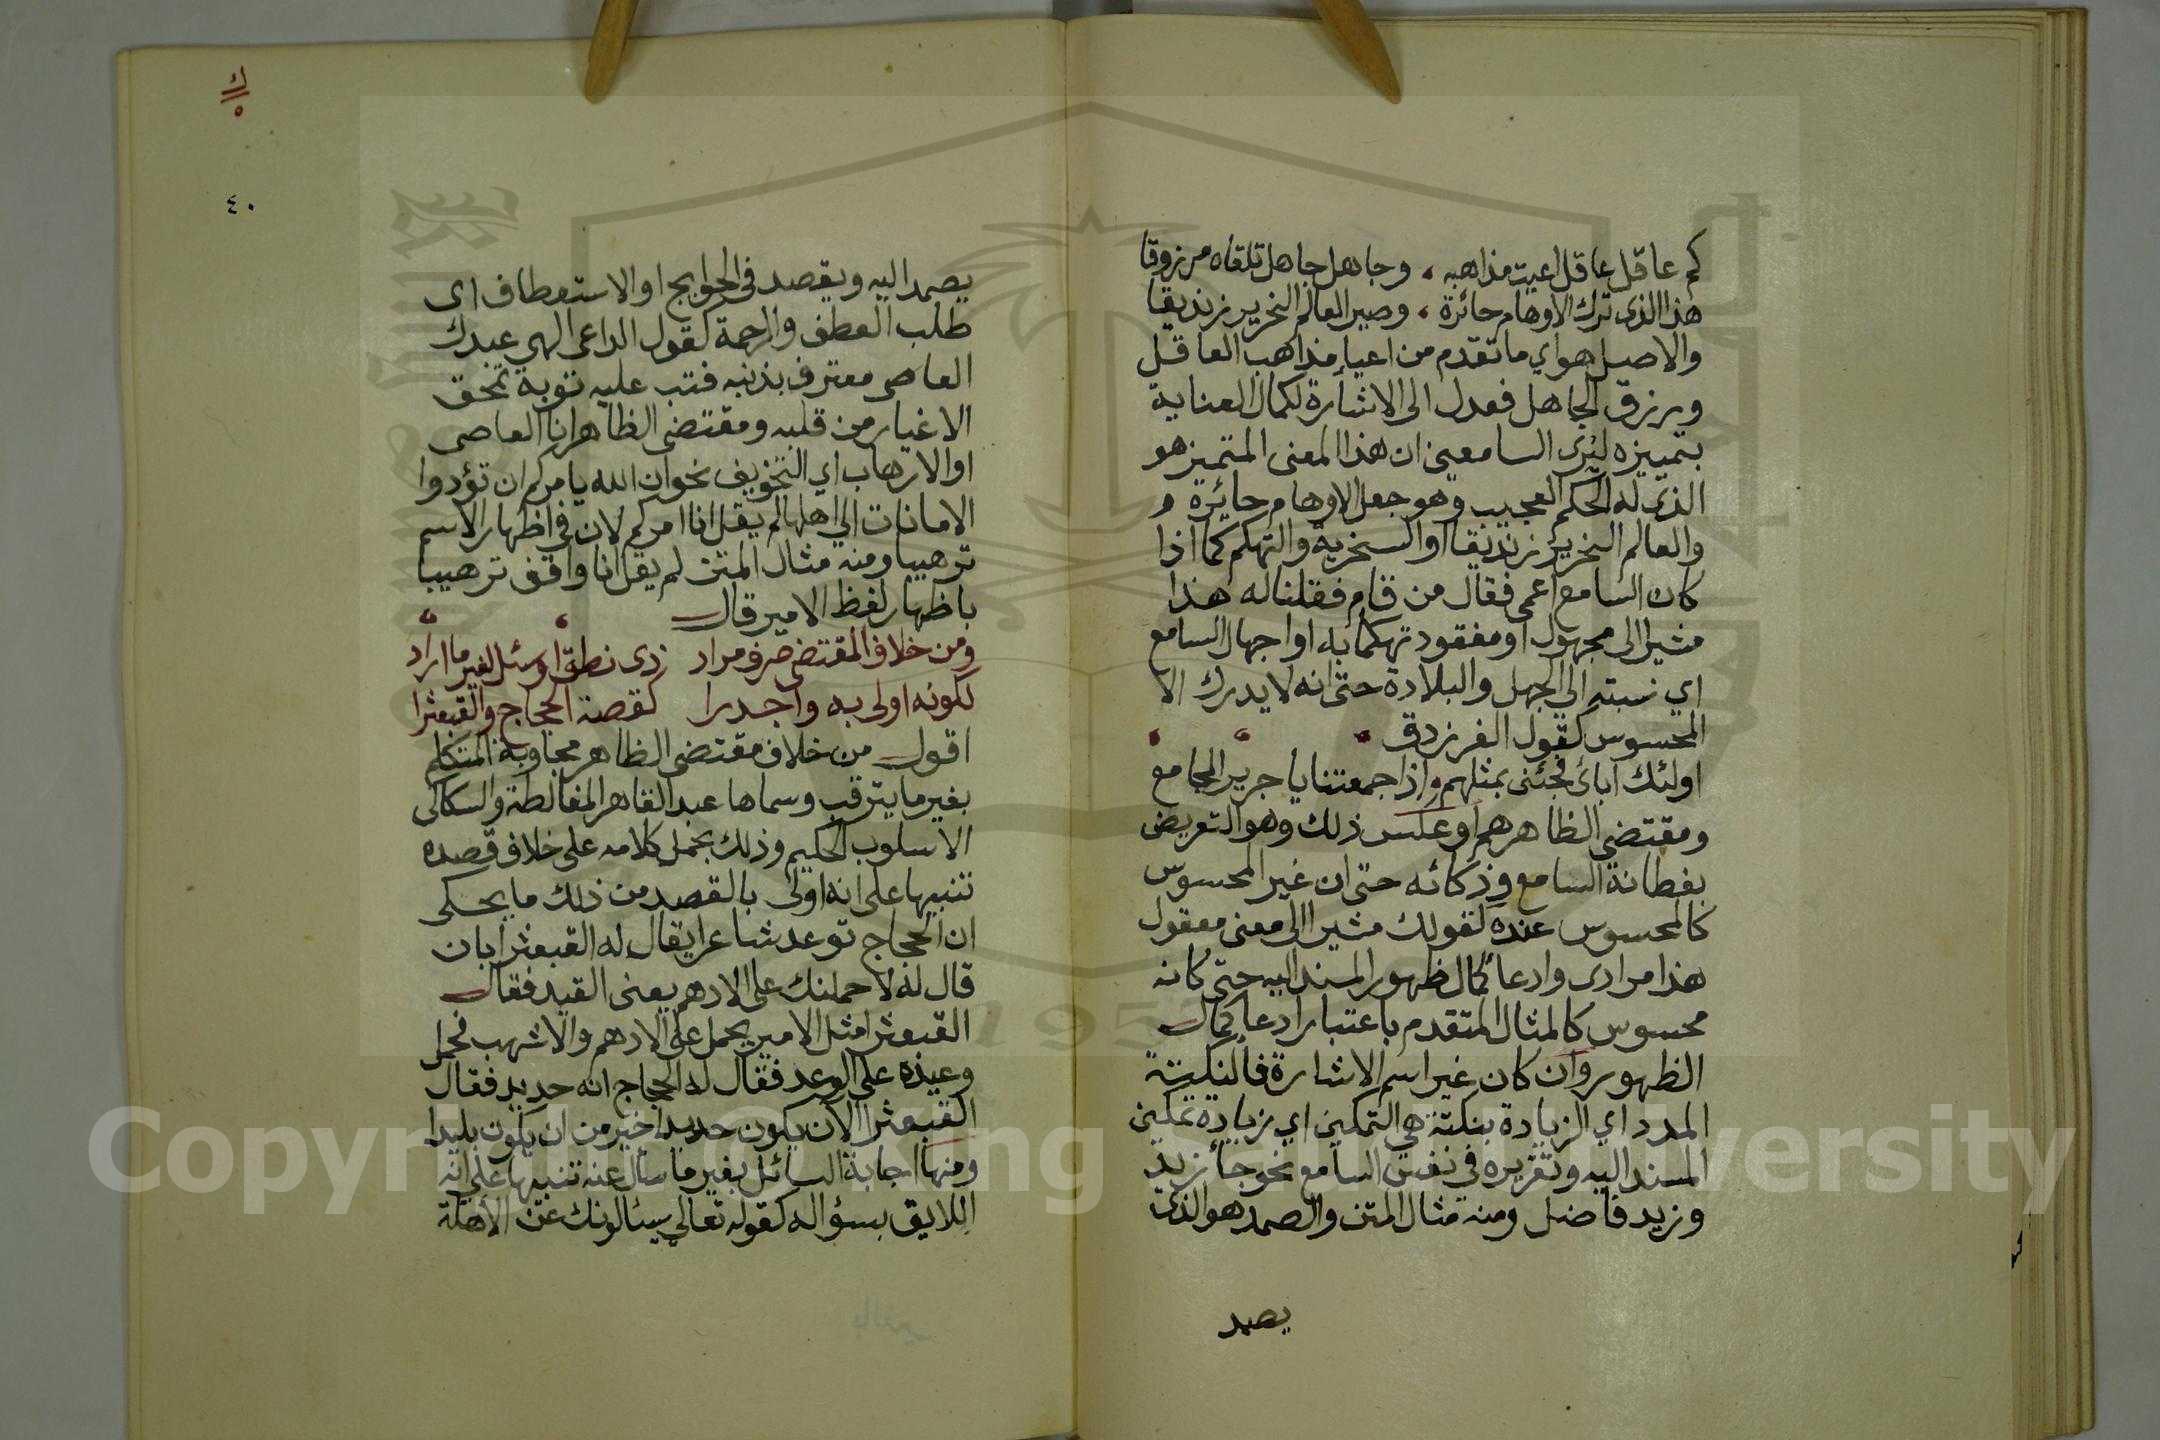 كم عاقل عاقل اعيت مذاهبه ، وجاهل جاهل تلقاه مرزوقا
هذا الذى ترك الاوهام حائرة ، وصير العالم النحرير زنديقا
والاصل هو اي ما تقدم من اعياء مذاهب العاقل
ورزق الجاهل فعدل الى الاشارة لكمال العناية
بتمييزه ليرى السامعين ان هذا المعنى المتميز هو
الذى له الحكم العجيب وهو جعل الاوهام حائرة و
والعالم النحرير زنديقا او السخرية والتهكم كما اذا
كان السامع اعمى فقال من قام فقلنا له هذا
مشيرا الى مجهول او مفقود تهكما به او اجهال السامع
اي نسبته الى الجهل والبلادة حتى انه لا يدرك الا
المحسوس كقول الفرزدق
اولئك ابائ فجئنى بمثلهم واذا جمعتنا يا جرير المجامع
ومقتضى الظاهر هم او عكس ذلك وهو التعريض
بفطانة السامع وذكائه حتى ان غير المحسوس
كالمحسوس عنده لقولك مشيرا الى معنى معقول
هذا مرادى وادعا كمال ظهور المسند اليه حتى كانه
محسوس كالمثال المتقدم باعتبار ادعا كمال
الظهور وان كان غير اسم الاشارة فالنكيتة
المدد اي الزيادة بنكتة هي التمكين اي زيادة تمكين
المسند اليه وتقريره في نفس السامع نحو جا زيد
وزيد فاضل ومنه مثال المتن والصمد هو الذى
يصمد
ك
٤٠
يصمد اليه ويقصد في الحوايج او الاستعطاف اى
طلب العطف والرحمة كقول الداعى الهى عبدك
العاصى معترف بذنبه فتب عليه توبة تمحق
الاغيار من قلبه ومقتضى الظاهر انا العاصى
او الارهاب اي التخويف نحو ان الله يامركم ان تؤدوا
الامانات الي اهلها لم يقل انا امركم لان في اظهار الاسم
ترهيبا ومنه مثال المتن لم يقل انا واقف ترهيبا
باظهار لفظ الامير قال
ومن خلاف المقتضى صرف مراد ذى نطق او سئل لغير ما اراد
لكونه اولى به واجدرا كقصة الحجاج والقبعثرا
اقول من خلاف مقتضى الظاهر مجاوبة المتكلم
بغير ما يترقب وسماها عبد القاهر المغالطة والسكاكى
الاسلوب الحكيم وذلك بحمل كلامه على خلاف قصده
تنبيها على انه اولى بالقصد من ذلك ما يحكى
ان الحجاج توعد شاعرا يقال له القبعثرا بان
قال له لاحملنك على الادهم يعنى القيد فقال
القبعثرا مثل الامير يحمل على الادهم والاشهب فحمل
وعيده على الوعد فقال له الحجاج انه حديد فقال
القبعثرا لان يكون حديدا خير من ان يكون بليدا
ومنها اجابة السائل بغير ما سأل عنه تنبيها على انه
اللايق بسؤاله كقوله تعالى يسئالونك عن الاهلة
Copyright © King Saud University
1957